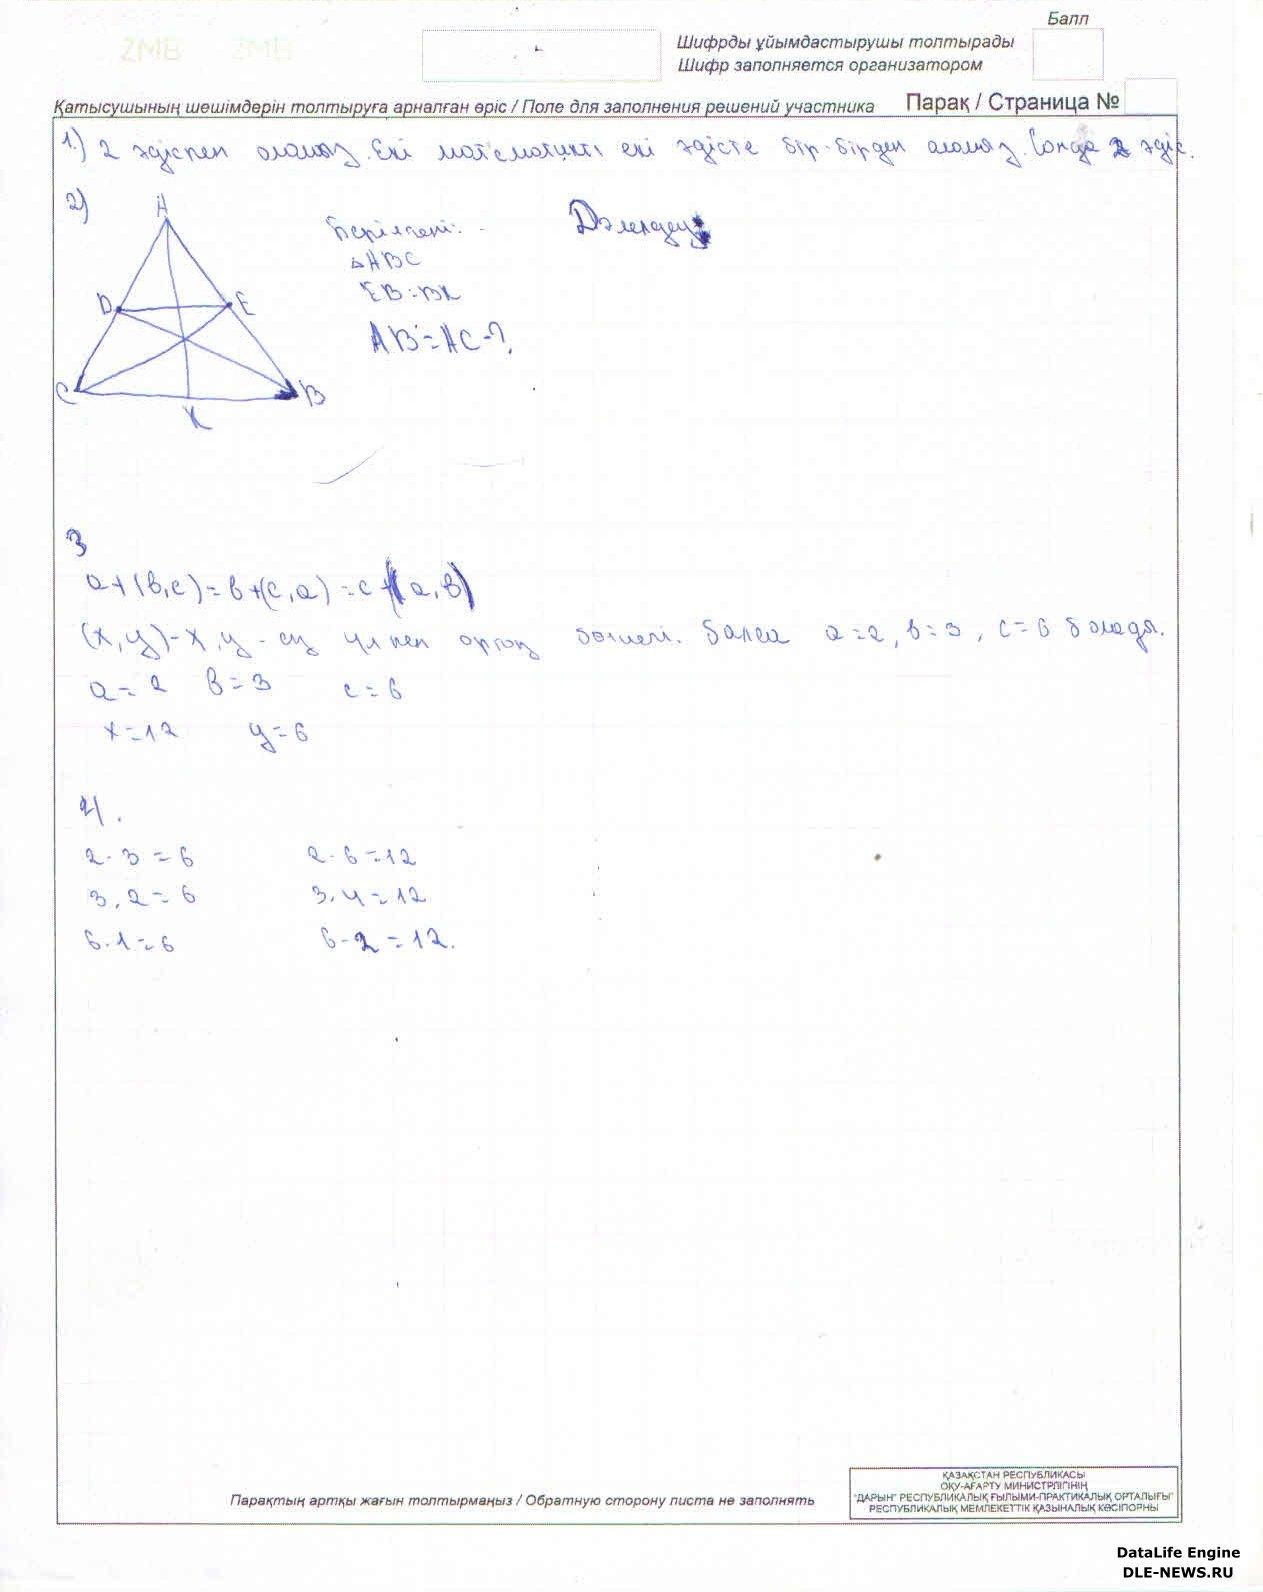 Балл
Шифрды ұйымдастырушы толтырады
Шифр заполняется организатором
Қатысушының шешімдерін толтыруға арналған өріс / Поле для заполнения решений участника
Парақ / Страница №
1.) 2 әдіспен аламыз. Екі математикті екі әдісте бір-бірден аламыз. Сонда 2 әдіс.
2)
A
Берілгені:
Дәлелдеу:
△ABC
D E
EB=BK
AB=AC-?
C B
K
3
a+(в,c)=в+(c,a)=c+(a,в)
(x,y)-x,y-ең үлкен ортақ бөлгіші. болса a=2, в=3, c=6 болады.
a=2 в=3 c=6
x=12 y=6
4.
2·3=6 2·6=12
3·2=6 3·4=12
6·1=6 6·2=12.
ҚАЗАҚСТАН РЕСПУБЛИКАСЫ
ОҚУ-АҒАРТУ МИНИСТРЛІГІНІҢ
"ДАРЫН" РЕСПУБЛИКАЛЫҚ ҒЫЛЫМИ-ПРАКТИКАЛЫҚ ОРТАЛЫҒЫ"
РЕСПУБЛИКАЛЫҚ МЕМЛЕКЕТТІК ҚАЗЫНАЛЫҚ КӘСІПОРНЫ
Парақтың артқы жағын толтырмаңыз / Обратную сторону листа не заполнять
DataLife Engine
DLE-NEWS.RU